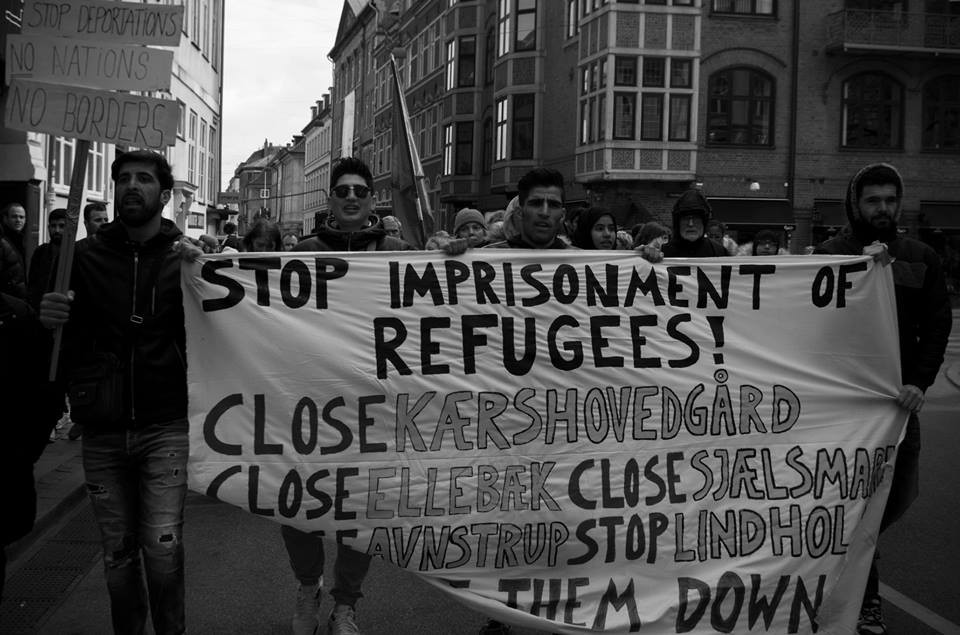 STOP DEPORTATIONS
NO NATIONS
NO BORDERS
STOP IMPRISONMENT OF
REFUGEES!
CLOSE KÆRSHOVEDGÅRD
CLOSE ELLEBÆK CLOSE SJÆLSMARK
AVNSTRUP STOP LINDHOL
THEM DOWN